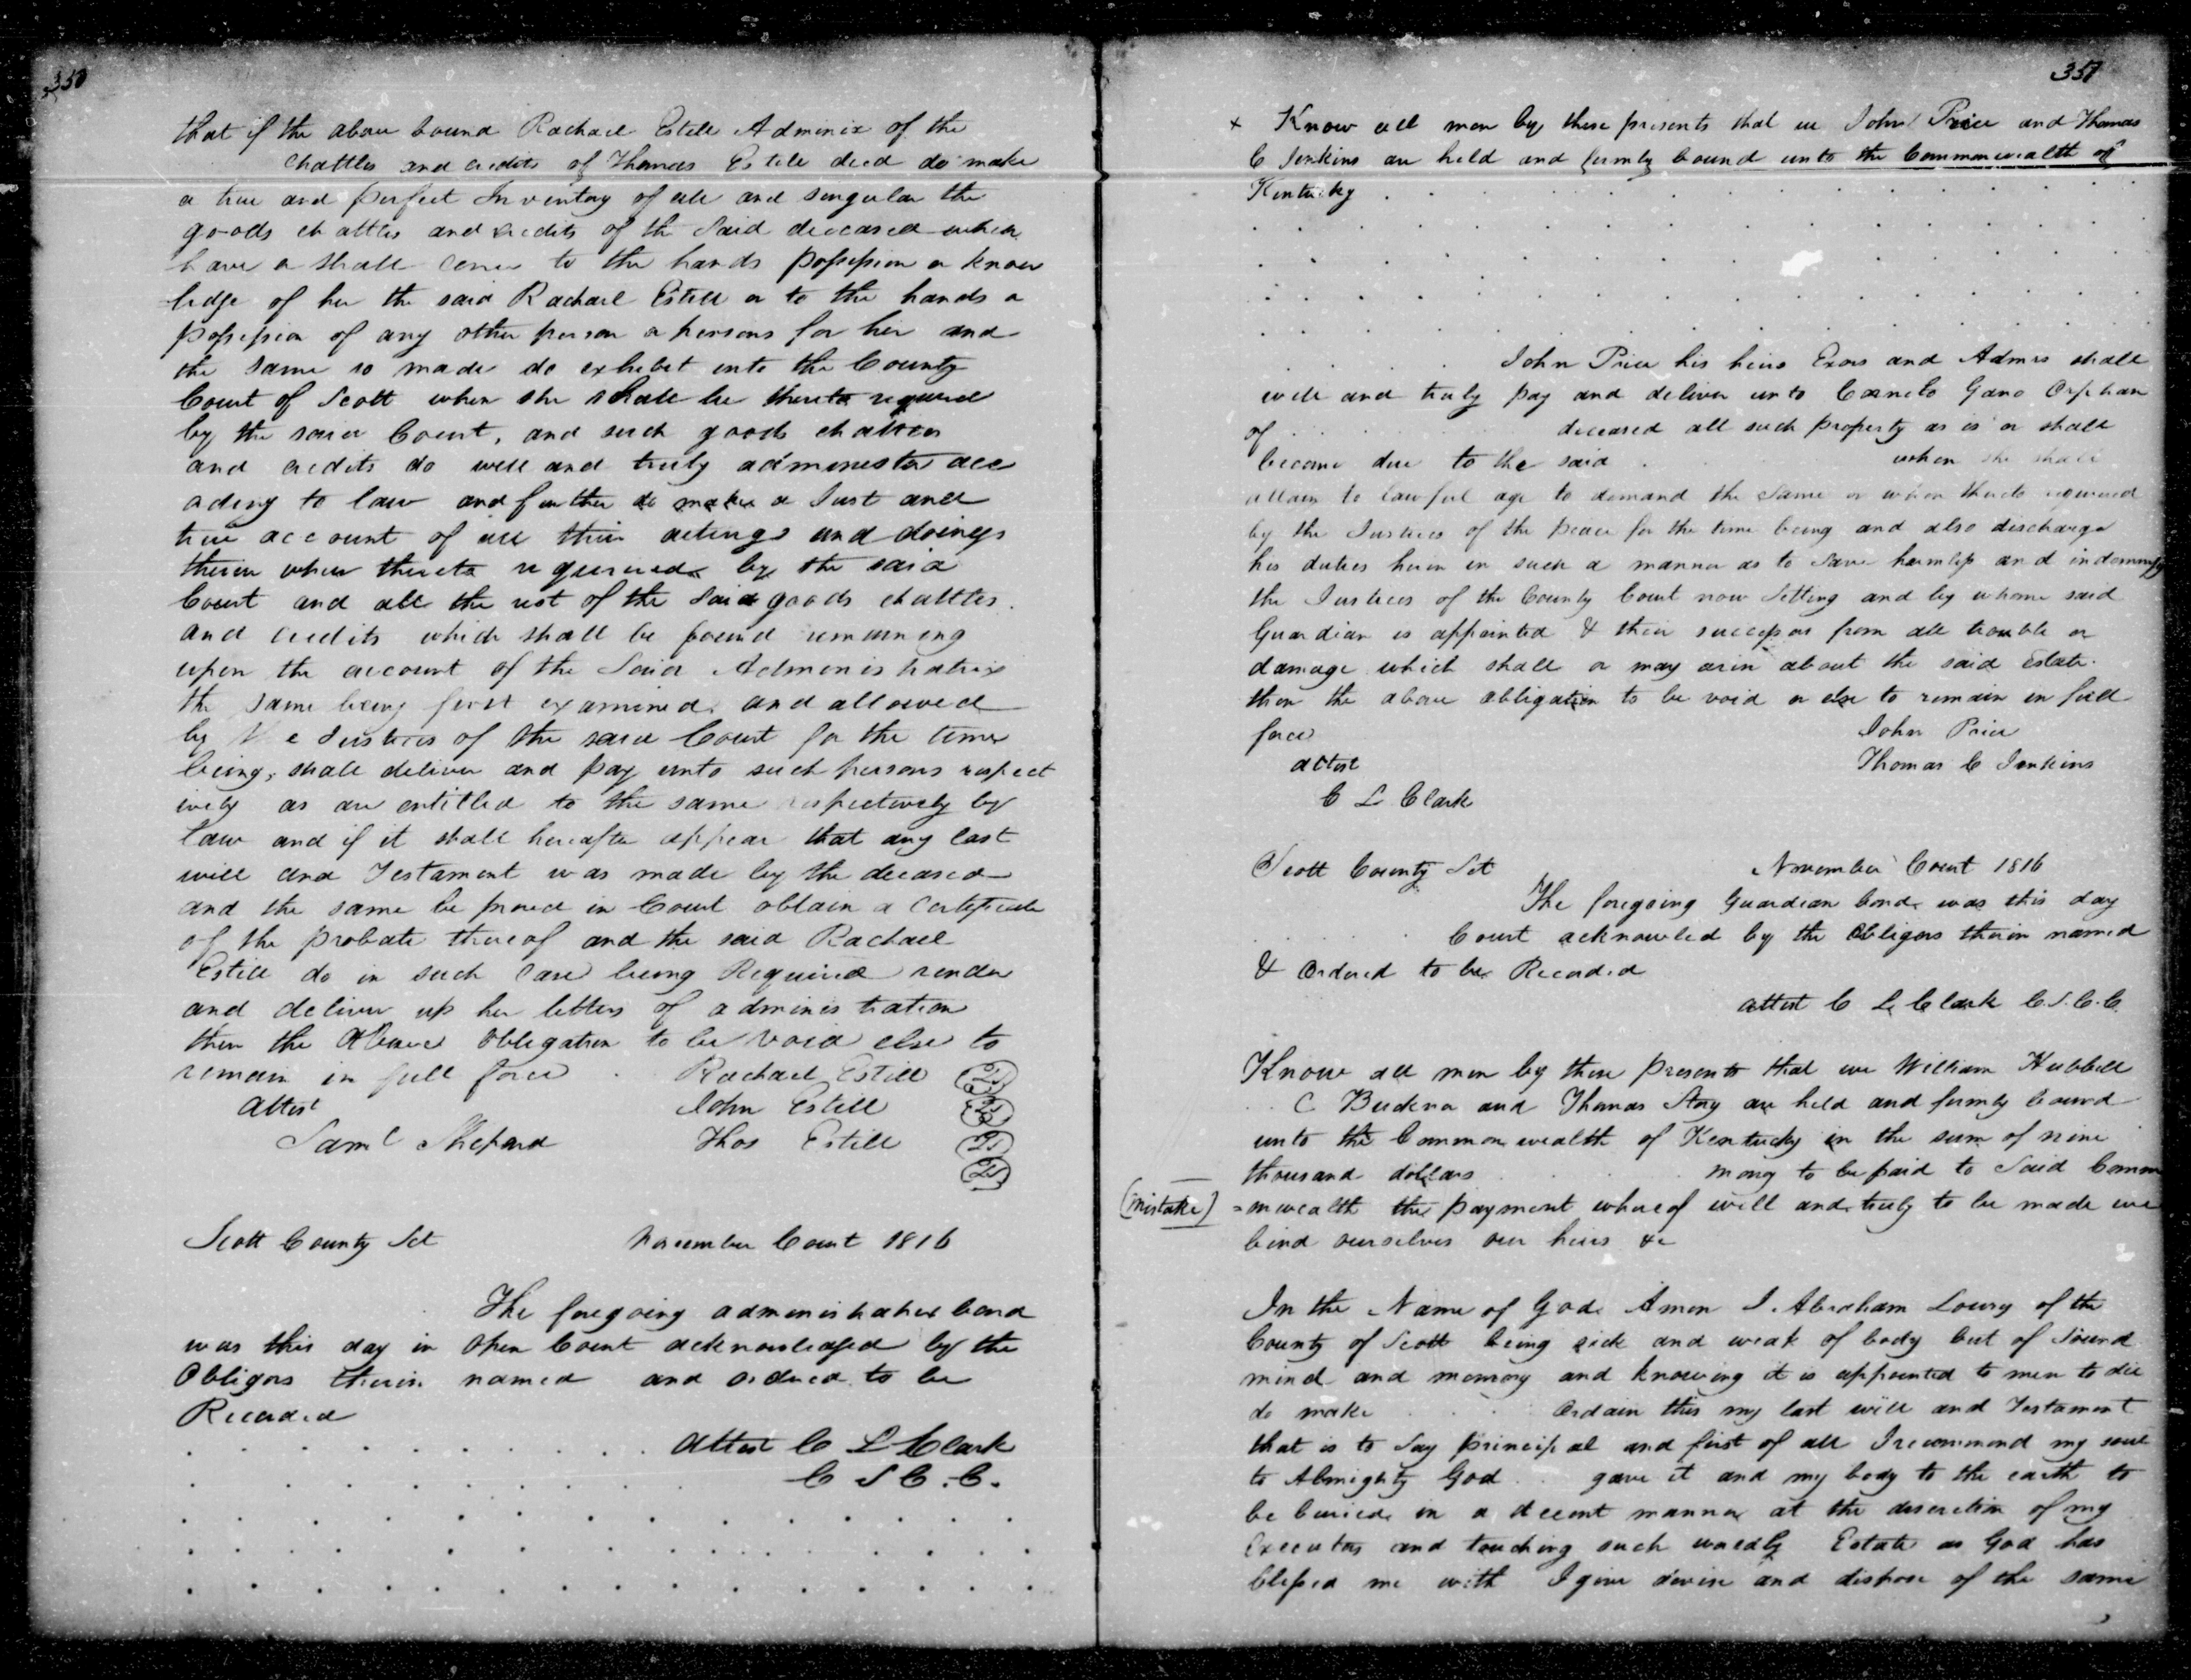 350
that if the above bound Rachael Estill Adminix of the
chattles and credits of Thomas Estill decd do make
a true and perfect Inventory of all and singular the
goods chattles and credits of the Said deceased which
have or shall come to the hands possession or know
ledge of her the said Rachael Estill or to the hands or
possession of any other person or persons for her and
the same so made do exhibit into the County
Court of Scott when she shall be thereto required
by the said Court, and such goods chattles
and credits do well and truly administer acc
ording to law and further do make a Just and
true account of all their actings and doings
therein when thereto required by the said
Court and all the rest of the Said goods chattles
and credits which shall be found remaining
upon the account of the Said Administratrix
the same being first examined and allowed
by the Justices of the said Court for the time
being, shall deliver and pay unto such persons respect
ively as are entitled to the same respectively by
law and if it shall hereafter appear that any last
will and Testament was made by the deceased
and the same be proved in Court obtain a Certificate
of the probate thereof and the said Rachael
Estill do in such case being Required render
and deliver up her letters of administration
then the above obligation to be void else to
remain in full force . Rachael Estill
attest John Estill
Saml Shepard Thos Estill
Scott County Sct November Court 1816
The foregoing administrators bond
was this day in open Court acknowledged by the
Obligors therein named and ordered to be
Recorded
Attest C L Clark
C S C. C.
351
x Know all men by these presents that we John Price and Thomas
C Jenkins are held and firmly bound unto the Commonwealth of
Kentucky
John Price his heirs Exors and Admrs shall
well and truly pay and deliver unto Gano Orphan
of deceased all such property as is or shall
become due to the said when she shall
attain to lawful age to demand the same or when thereto required
by the Justices of the peace for the time being and also discharge
his duties herein in such a manner as to save harmless and indemnify
the Justices of the County Court now Sitting and by whome said
Guardian is appointed & their successors from all trouble or
damage which shall or may arise about the said Estate.
then the above obligation to be void or else to remain in full
force John Price
attest Thomas C Jenkins
C L Clark
Scott County Sct November Court 1816
The foregoing Guardian bond was this day
Court acknowled by the Obligors therein named
& Ordered to be Recorded
attest C L Clark C.S.C.C.
Know all men by these presents that we William Hubbell
C and Thomas are held and firmly bound
unto the Commonwealth of Kentucky in the sum of nine
thousand dollars money to be paid to Said Comm
(mistake) =onwealth the payment whereof will and truly to be made we
bind ourselves our heirs &c
In the Name of God Amen I Abraham Lowry of the
County of Scott being sick and weak of body but of Sound
mind and memory and knowing it is appointed to men to die
do make ordain this my last will and Testament
that is to Say principal and first of all I recommend my soul
to Almighty God gave it and my body to the earth to
be buried in a decent manner at the discretion of my
Executors and touching such wordly Estate as God has
blessed me with I give devise and dispose of the same